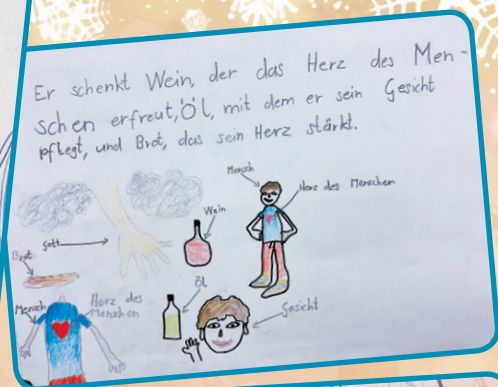 Er schenkt Wein, der das Herz des Men-
schen erfreut, Öl, mit dem er sein Gesicht
pflegt, und Brot, das sein Herz stärkt.
Mensch
Herz des Menschen
Wein
Gott
Brot
Öl
Mensch
Herz des
Menschen
Gesicht